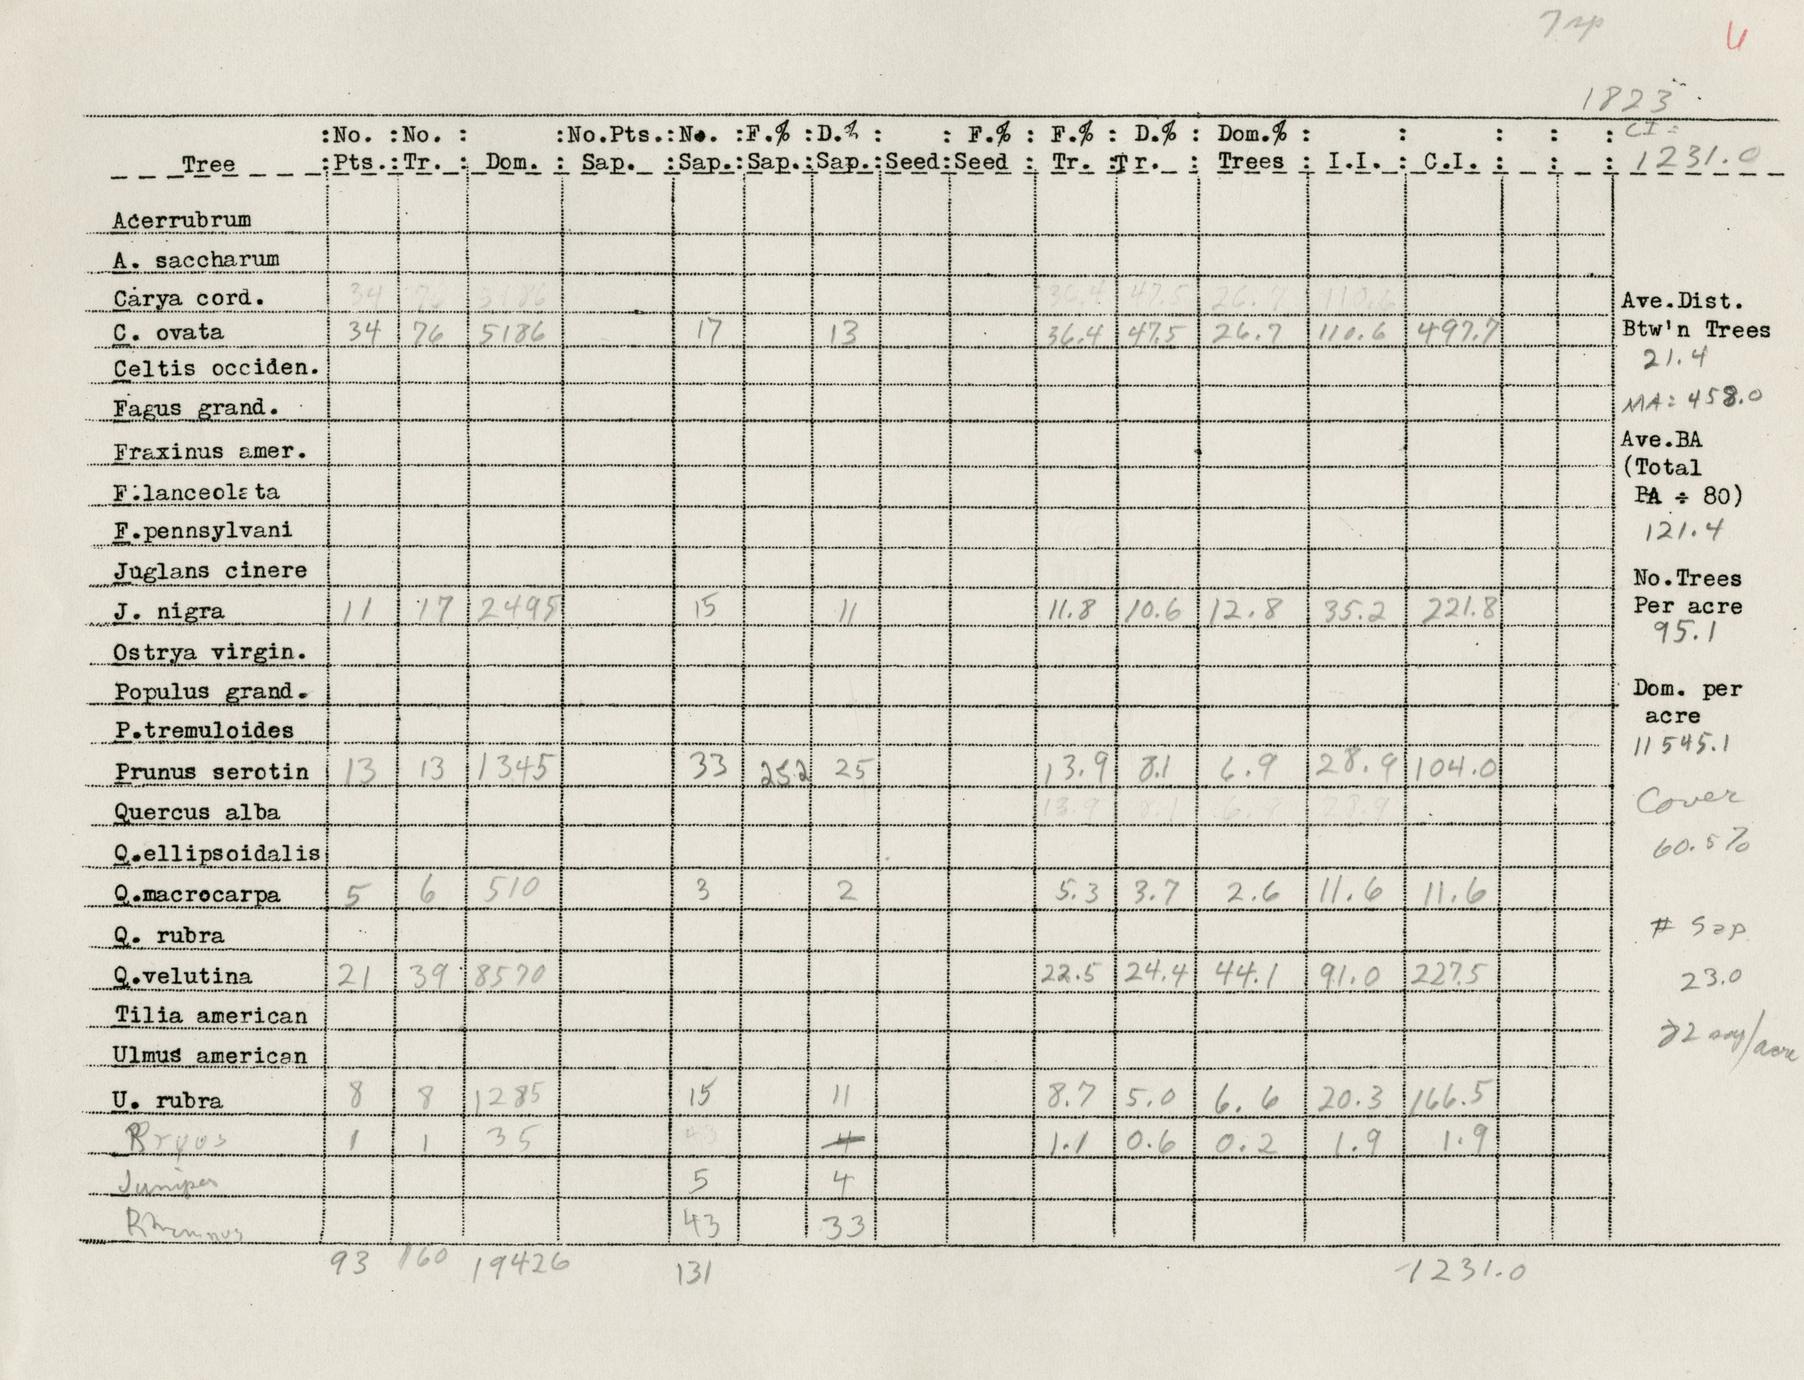 7 sp
1823
:No. :No. : :No.Pts.:No. :F.% :D.% : : F.% : F.% : D.% : Dom.% : : : : : CI=
Tree :Pts.:Tr. : Dom. : Sap. :Sap.:Sap.:Sap.:Seed:Seed : Tr. :Tr. : Trees : I.I. : C.I. : : : 1231.0
Acerrubrum
A. saccharum
Carya cord. 34 76 5186 36.4 47.5 26.7 110.6
C. ovata 34 76 5186 17 13 36.4 47.5 26.7 110.6 497.7
Celtis occiden.
Fagus grand.
Fraxinus amer.
F.lanceolata
F.pennsylvani
Juglans cinere
J. nigra 11 17 2495 15 11 11.8 10.6 12.8 35.2 221.8
Ostrya virgin.
Populus grand.
P.tremuloides
Prunus serotin 13 13 1345 33 25.2 25 13.9 8.1 6.9 28.9 104.0
Quercus alba 13.9 8.1 6.8 28.9
Q.ellipsoidalis
Q.macrocarpa 5 6 510 3 2 5.3 3.7 2.6 11.6 11.6
Q. rubra
Q.velutina 21 39 8570 22.5 24.4 44.1 91.0 227.5
Tilia american
Ulmus american
U. rubra 8 8 1285 15 11 8.7 5.0 6.6 20.3 166.5
1 1 35 43 4 1.1 0.6 0.2 1.9 1.9
Juniper 5 4
Rhamnus 43 33
93 160 19426 131 1231.0
Ave.Dist.
Btw'n Trees
21.4
MA: 458.0
Ave.BA
(Total
BA ÷ 80)
121.4
No.Trees
Per acre
95.1
Dom. per
acre
11545.1
Cover
60.5%
# Sap
23.0
/acre